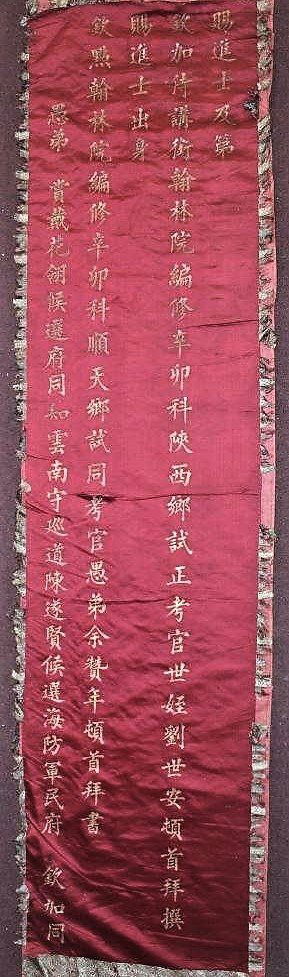 賜進士及第
欽加侍講銜翰林院編修辛卯科陝西鄉試正考官世姪劉世安頓首拜撰
賜進士出身
欽點翰林院編修辛卯科順天鄉試同考官愚弟余贊年頓首拜書
愚弟 賞戴花翎候選府同知雲南守巡道陳遂賢候選海防軍民府 欽加同